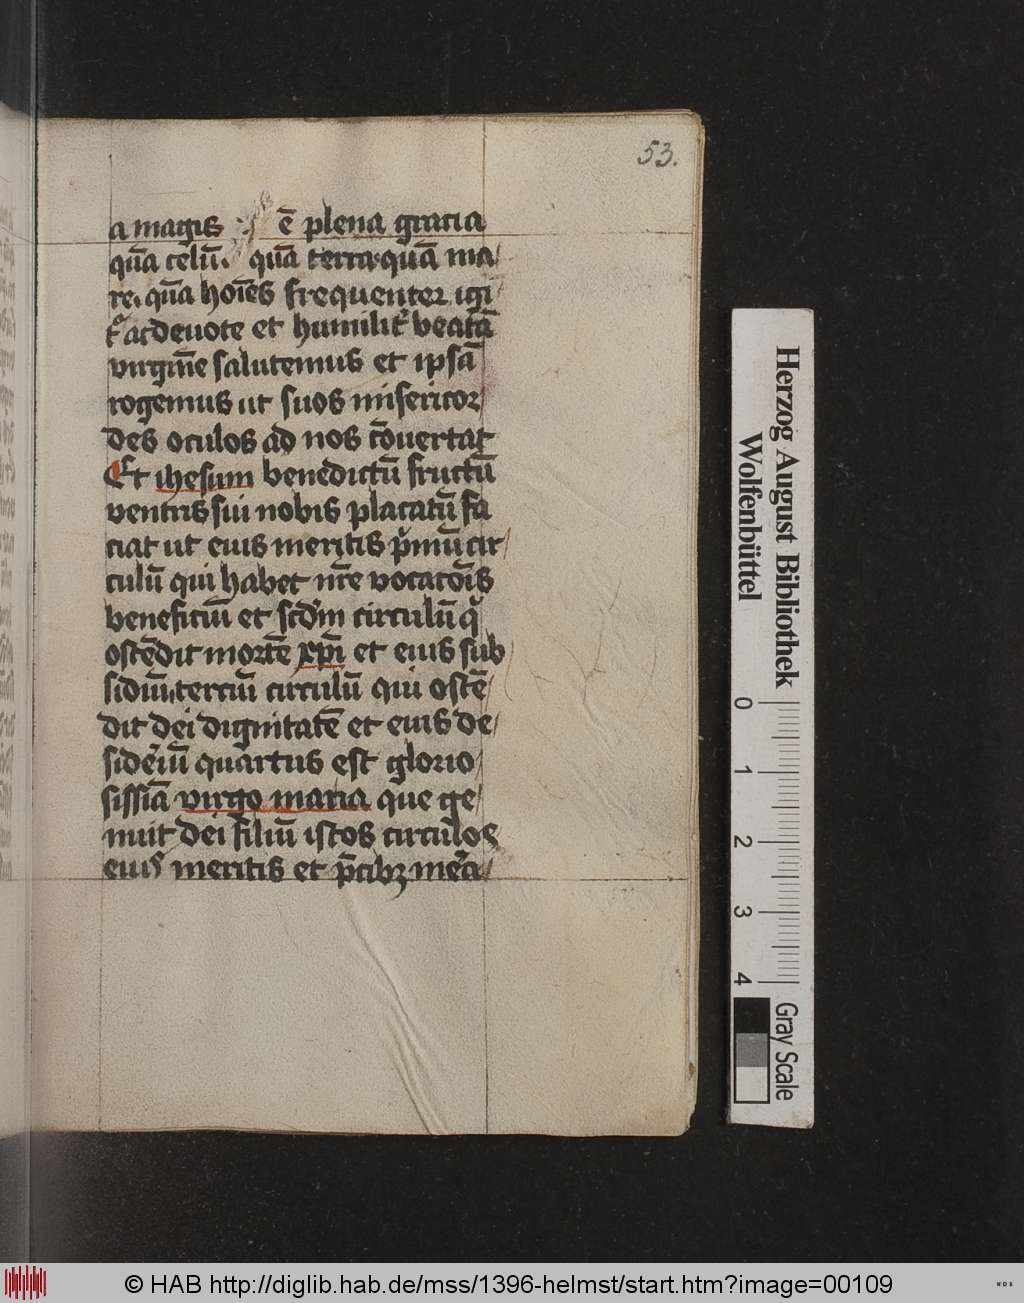 53.
a magis ē plena gracia
qua̅ celu̅. qua̅ terra. qua̅ ma/
re. qua̅ hoi̅es frequenter igi/
tͬ ac deuote et humilit̉ beata̅
virgi̅e̅ salutemus et ipsa̅
rogemus ut suos misericor/
des oculos ad nos co̅uertat
Et ihesum benedictu̅ fructu̅
ventris sui nobis placatu̅ fa
ciat ut eius meritis p̉mu̅ cir/
culu̅ qui habet nr̅e vocaco̅is
beneficiu̅ et scd̅m circulu̅ q
oste̅dit morte̅ xp̅i et eius sub
sidiu̅. terciu̅ circulu̅ qui oste̅/
dit dei dignitate̅ et eius de/
side̓iu̅ quartus est glorio/
sissi̅a virgo maria que ge/
nuit dei filiu̅ istos circulos
eius meritis et p̅cibꝫ me̓a/
Herzog August Bibliothek
Wolfenbüttel
0 1 2 3 4
Gray Scale
© HAB http://diglib.hab.de/mss/1396-helmst/start.htm?image=00109
WDB